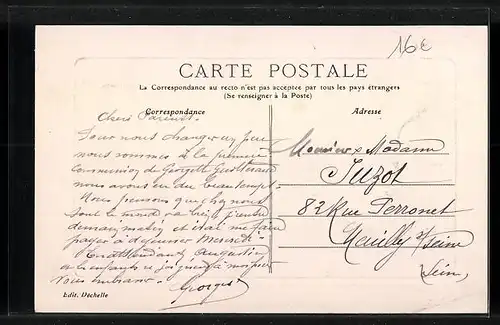 16€
CARTE POSTALE
La Correspondance au recto n'est pas acceptée par tous les pays étrangers
(Se renseigner à la Poste)
Correspondance
Adresse
Chers Parents.
Pour nous changer un peu
nous sommes à la première
Communion de Georgette
nous avons eu du beau temps.
Nous pensons que chez nous
tout le monde va bien
demain matin
payer à déjeuner
En attendant Augustine
et les enfants se joignent à moi pour
vous embrasser.
Georges
Monsieur & Madame
Juzot
82 Rue Perronet
Neuilly s/ Seine
Seine
Edit. Déchelle